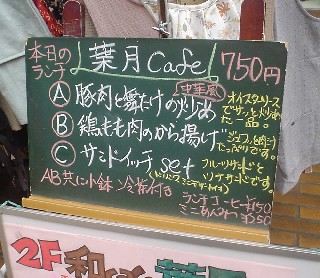 本日の
ランチ
葉月Cafe
750円
Ⓐ 豚肉と舞たけの炒め
中華風
オイスターソース
でサッと炒めた
一品。
Ⓑ 鶏もも肉のから揚げ
ジューシィ肉汁
たっぷりです。
Ⓒ サンドイッチ set
フルーツサンドと
ツナサンドです。
AB共に小鉢 冷茶付き
ランチコーヒー¥150
ミニあんみつ ¥250
2F 和